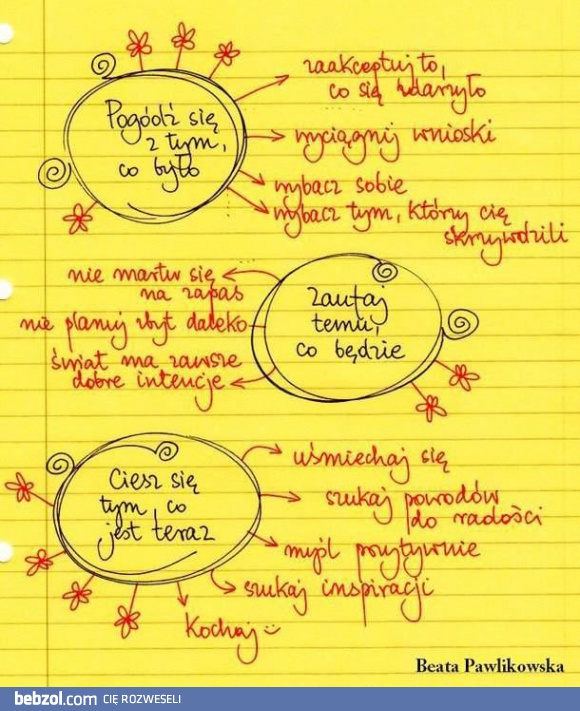 Pogódź się
z tym,
co było
zaakceptuj to,
co się zdarzyło
wyciągnij wnioski
wybacz sobie
wybacz tym, którzy cię
skrzywdzili
Zaufaj
temu,
co będzie
nie martw się
na zapas
nie planuj zbyt daleko
świat ma zawsze
dobre intencje
Ciesz się
tym, co
jest teraz
uśmiechaj się
szukaj powodów
do radości
myśl pozytywnie
szukaj inspiracji
Kochaj :)
Beata Pawlikowska
bebzol.com CIĘ ROZWESELI